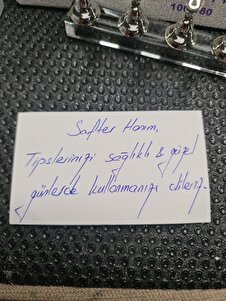 100 80
Safter Hanım,
Tipslerinizi sağlıklı & güzel
günlerde kullanmanızı dileriz.